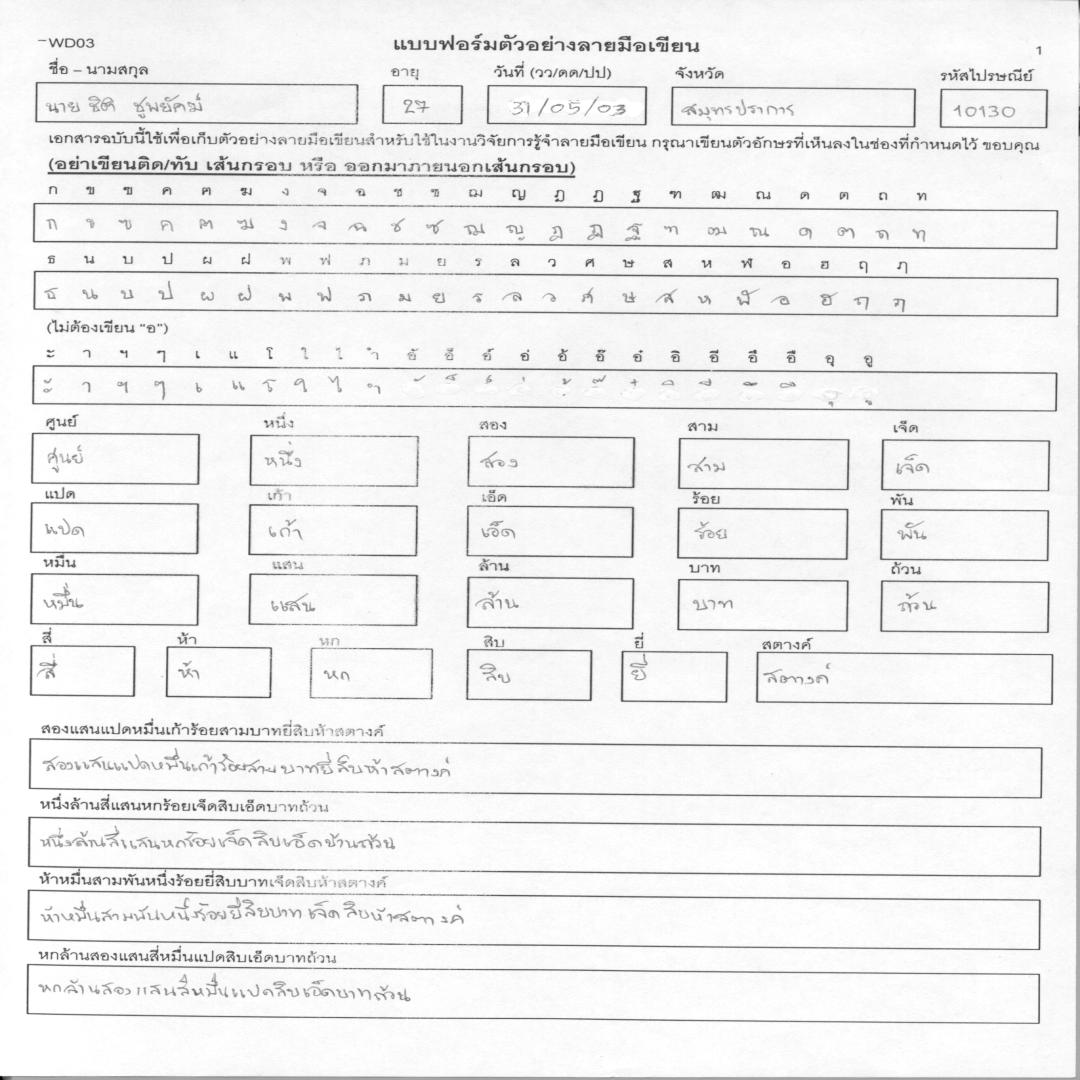 WD03 แบบฟอร์มตัวอย่างลายมือเขียน 1
ชื่อ – นามสกุล อายุ วันที่ (วว/ดด/ปป) จังหวัด รหัสไปรษณีย์
นาย 27 31/05/03 สมุทรปราการ 10130
เอกสารฉบับนี้ใช้เพื่อเก็บตัวอย่างลายมือเขียนสำหรับใช้ในงานวิจัยการรู้จำลายมือเขียน กรุณาเขียนตัวอักษรที่เห็นลงในช่องที่กำหนดไว้ ขอบคุณ
(อย่าเขียนติด/ทับ เส้นกรอบ หรือ ออกมาภายนอกเส้นกรอบ)
ก ข ฃ ค ฅ ฆ ง จ ฉ ช ซ ฌ ญ ฎ ฏ ฐ ฑ ฒ ณ ด ต ถ ท
ก ข ฃ ค ฅ ฆ ง จ ฉ ช ซ ฌ ญ ฎ ฏ ฐ ฑ ฒ ณ ด ต ถ ท
ธ น บ ป ผ ฝ พ ฟ ภ ม ย ร ล ว ศ ษ ส ห ฬ อ ฮ ฤ ฦ
ธ น บ ป ผ ฝ พ ฟ ภ ม ย ร ล ว ศ ษ ส ห ฬ อ ฮ ฤ ฦ
(ไม่ต้องเขียน “อ”)
ะ า ฯ ๆ เ แ โ ใ ไ ำ อั อ็ อ์ อ่ อ้ อ๊ อ๋ อิ อี อึ อื อุ อู
ะ า ฯ ๆ เ แ โ ใ ไ ำ ั ็ ์ ่ ้ ๊ ๋ ิ ี ึ ื ุ ู
ศูนย์ หนึ่ง สอง สาม เจ็ด
ศูนย์ หนึ่ง สอง สาม เจ็ด
แปด เก้า เอ็ด ร้อย พัน
แปด เก้า เอ็ด ร้อย พัน
หมื่น แสน ล้าน บาท ถ้วน
หมื่น แสน ล้าน บาท ถ้วน
สี่ ห้า หก สิบ ยี่ สตางค์
สี่ ห้า หก สิบ ยี่ สตางค์
สองแสนแปดหมื่นเก้าร้อยสามบาทยี่สิบห้าสตางค์
สองแสนแปดหมื่นเก้าร้อยสามบาทยี่สิบห้าสตางค์
หนึ่งล้านสี่แสนหกร้อยเจ็ดสิบเอ็ดบาทถ้วน
หนึ่งล้านสี่แสนหกร้อยเจ็ดสิบเอ็ดบ้านถ้วน
ห้าหมื่นสามพันหนึ่งร้อยยี่สิบบาทเจ็ดสิบห้าสตางค์
ห้าหมื่นสามพันหนึ่งร้อยยี่สิบบาทเจ็ดสิบห้าสตางค์
หกล้านสองแสนสี่หมื่นแปดสิบเอ็ดบาทถ้วน
หกล้านสองแสนสี่หมื่นแปดสิบเอ็ดบาทถ้วน